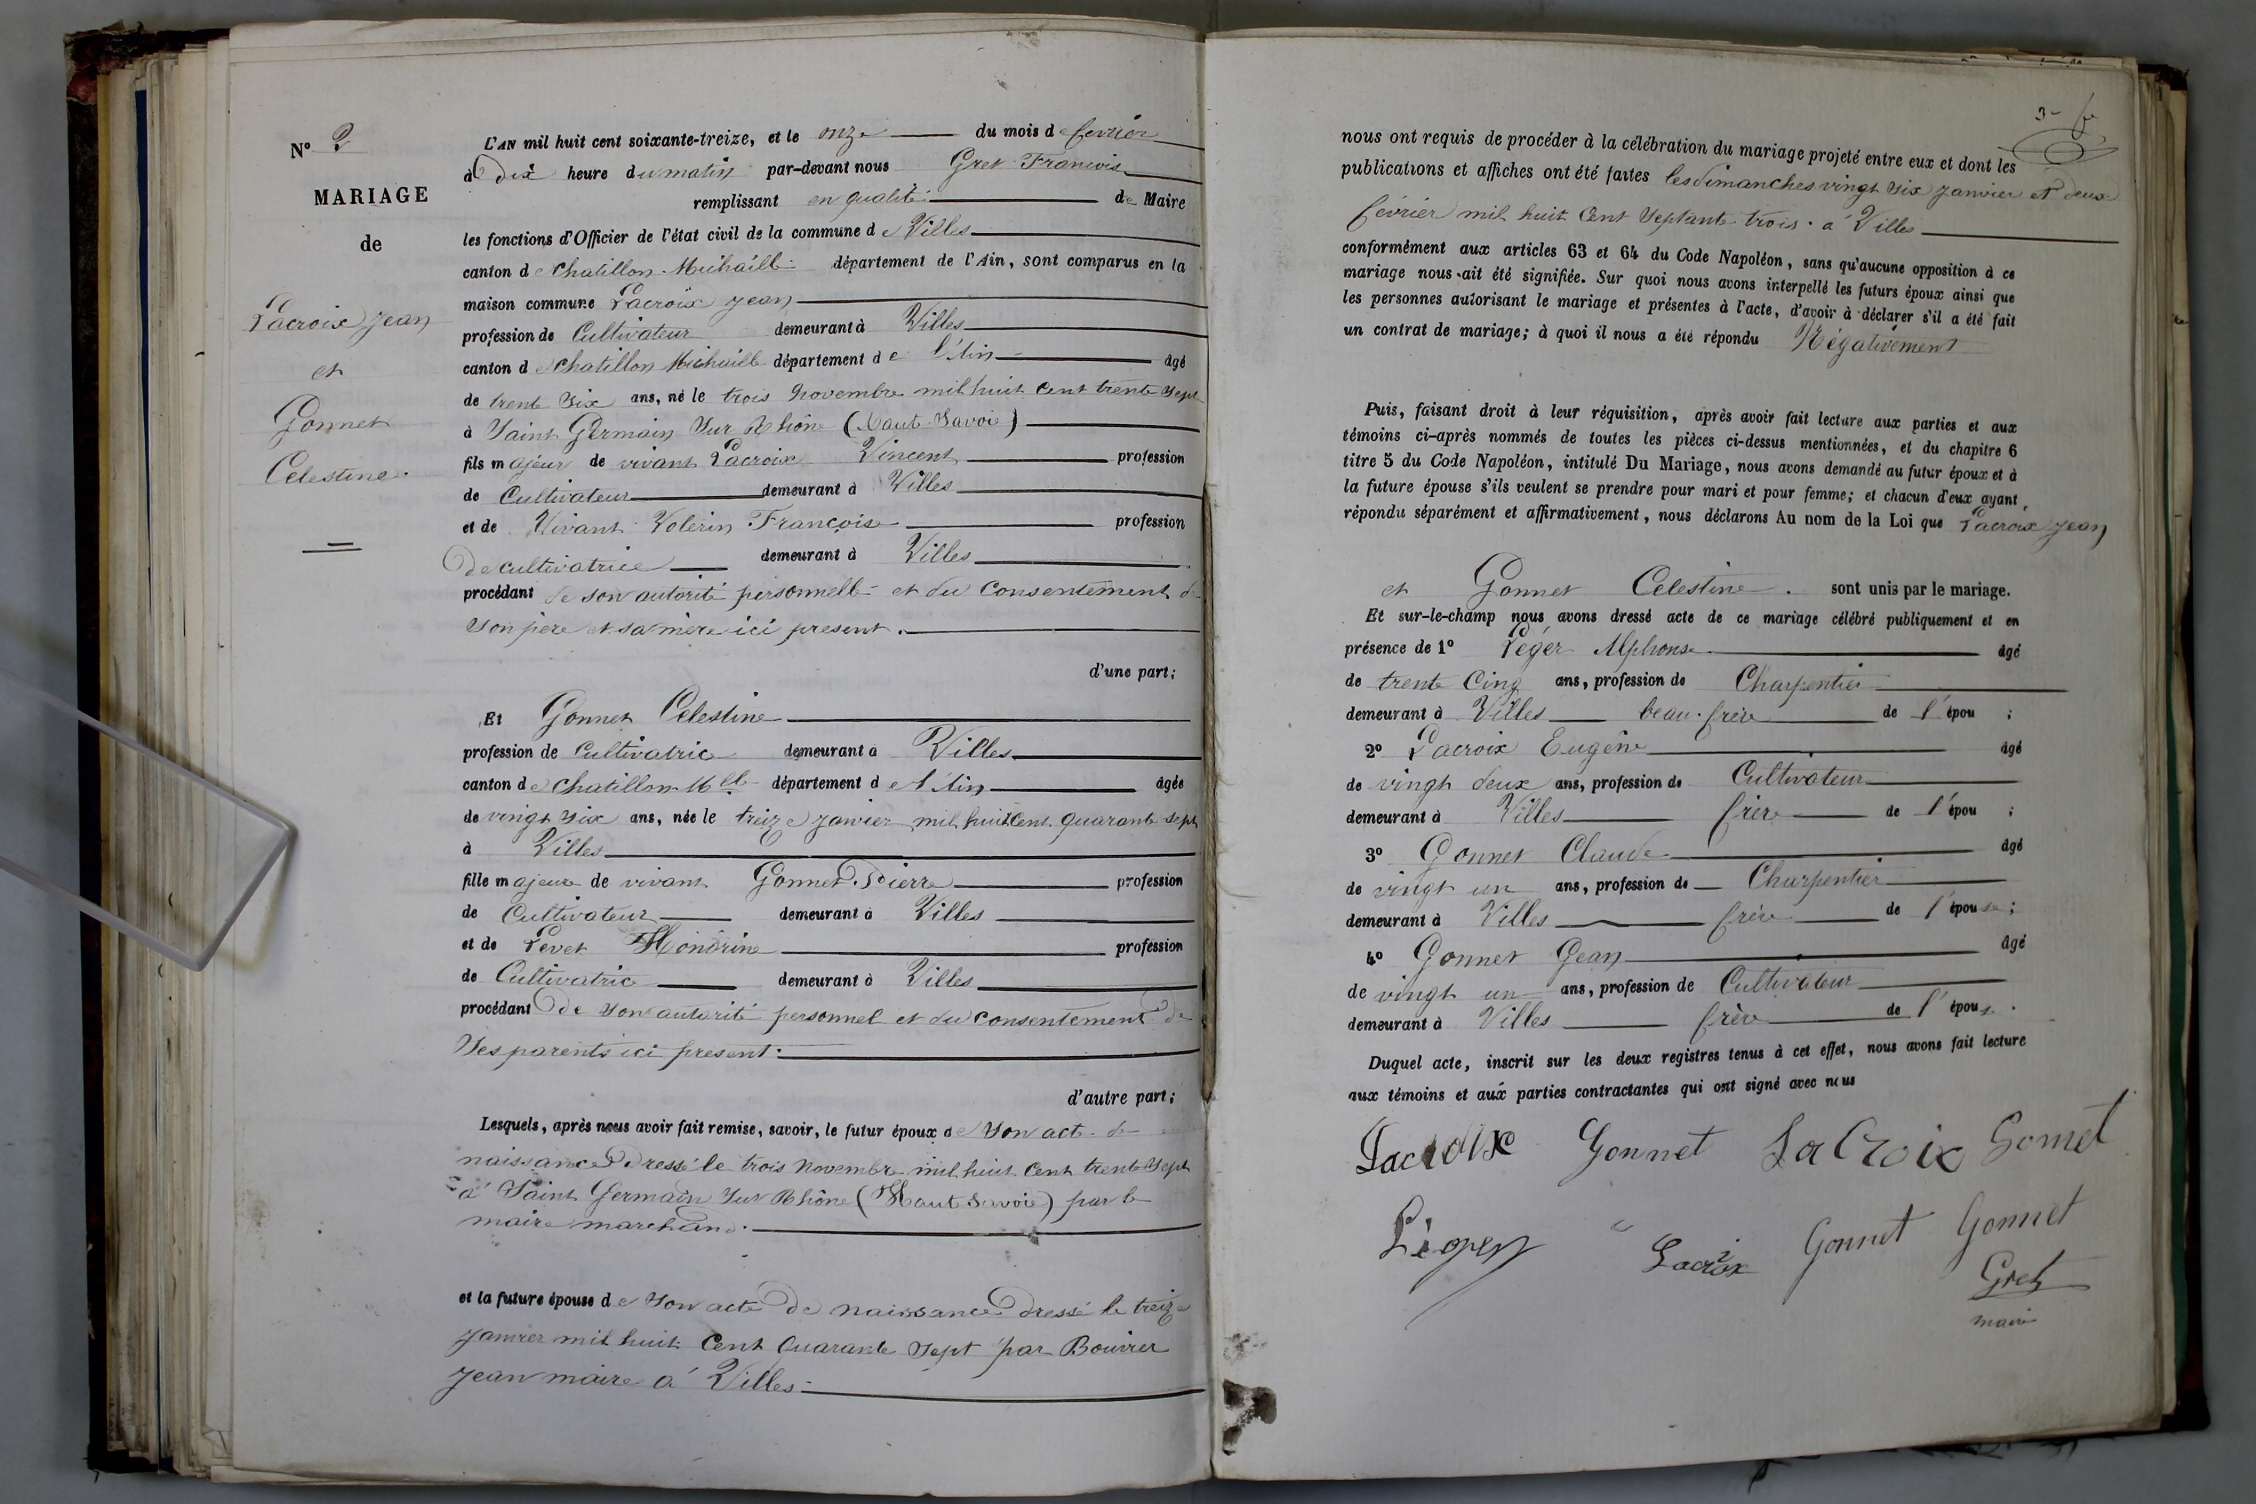 N° 2
MARIAGE
de
Lacroix Jean
et
Gonnet
Celestine.
L'AN mil huit cent soixante-treize, et le onze du mois de fevrier
à Dix heure du matin par-devant nous Gret Francois
remplissant en qualité de Maire
les fonctions d'Officier de l'état civil de la commune de Villes
canton de Chatillon Michaille département de l'Ain, sont comparus en la
maison commune Lacroix Jean
profession de Cultivateur demeurant à Villes
canton de Chatillon Michaille département de l'Ain âgé
de trente Six ans, né le trois Novembre mil huit Cent trente Sept
à Saint Germain Sur Rhône (Haut Savoie)
fils majeur de vivant Lacroix Vincent profession
de Cultivateur demeurant à Villes
et de Vivant Volerin Françoise profession
De cultivatrice demeurant à Villes
procédant de son autorité personnelle et du Consentement de
Son père et sa mère ici present.
d'une part;
Et Gonnet Celestine
profession de Cultivatrice demeurant à Villes
canton de Chatillon Mlle département de l'Ain âgée
de vingt Six ans, née le treize janvier mil huit Cent quarante sept
à Villes
fille majeure de vivant Gonnet Pierre profession
de Cultivateur demeurant à Villes
et de Levet Hondrine profession
de Cultivatrice demeurant à Villes
procédant De Son autorité personnel et du Consentement de
Ses parents ici present.
d'autre part;
Lesquels, après nous avoir fait remise, savoir, le futur époux de Son acte de
naissance Dressé le trois Novembre mil huit Cent trente Sept
à Saint Germain Sur Rhône (Haut Savoie) par le
maire marchand.
et la future épouse de Son acte de naissance dressé le treize
janvier mil huit Cent quarante Sept par Bouvier
Jean maire à Villes
3
nous ont requis de procéder à la célébration du mariage projeté entre eux et dont les
publications et affiches ont été faites les dimanches vingt six janvier et deux
fevrier mil huit Cent Septante trois. à Villes
conformément aux articles 63 et 64 du Code Napoléon, sans qu'aucune opposition à ce
mariage nous ait été signifiée. Sur quoi nous avons interpellé les futurs époux ainsi que
les personnes autorisant le mariage et présentes à l'acte, d'avoir à déclarer s'il a été fait
un contrat de mariage; à quoi il nous a été répondu Négativement
Puis, faisant droit à leur réquisition, après avoir fait lecture aux parties et aux
témoins ci-après nommés de toutes les pièces ci-dessus mentionnées, et du chapitre 6
titre 5 du Code Napoléon, intitulé Du Mariage, nous avons demandé au futur époux et à
la future épouse s'ils veulent se prendre pour mari et pour femme; et chacun d'eux ayant
répondu séparément et affirmativement, nous déclarons Au nom de la Loi que Lacroix Jean
et Gonnet Celestine. sont unis par le mariage.
Et sur-le-champ nous avons dressé acte de ce mariage célébré publiquement et en
présence de 1° Léger Alphonse âgé
de trente Cinq ans, profession de Charpentier
demeurant à Villes beau-frère de l'épou ;
2° Lacroix Eugène âgé
de vingt deux ans, profession de Cultivateur
demeurant à Villes frère de l'épou ;
3° Gonnet Claude âgé
de vingt un ans, profession de Charpentier
demeurant à Villes frère de l'épouse;
4° Gonnet Jean âgé
de vingt un ans, profession de Cultivateur
demeurant à Villes frère de l'épouse.
Duquel acte, inscrit sur les deux registres tenus à cet effet, nous avons fait lecture
aux témoins et aux parties contractantes qui ont signé avec nous
Lacroix Gonnet LaCroix Gonnet
Léger Lacroix Gonnet Gonnet
Gret
maire